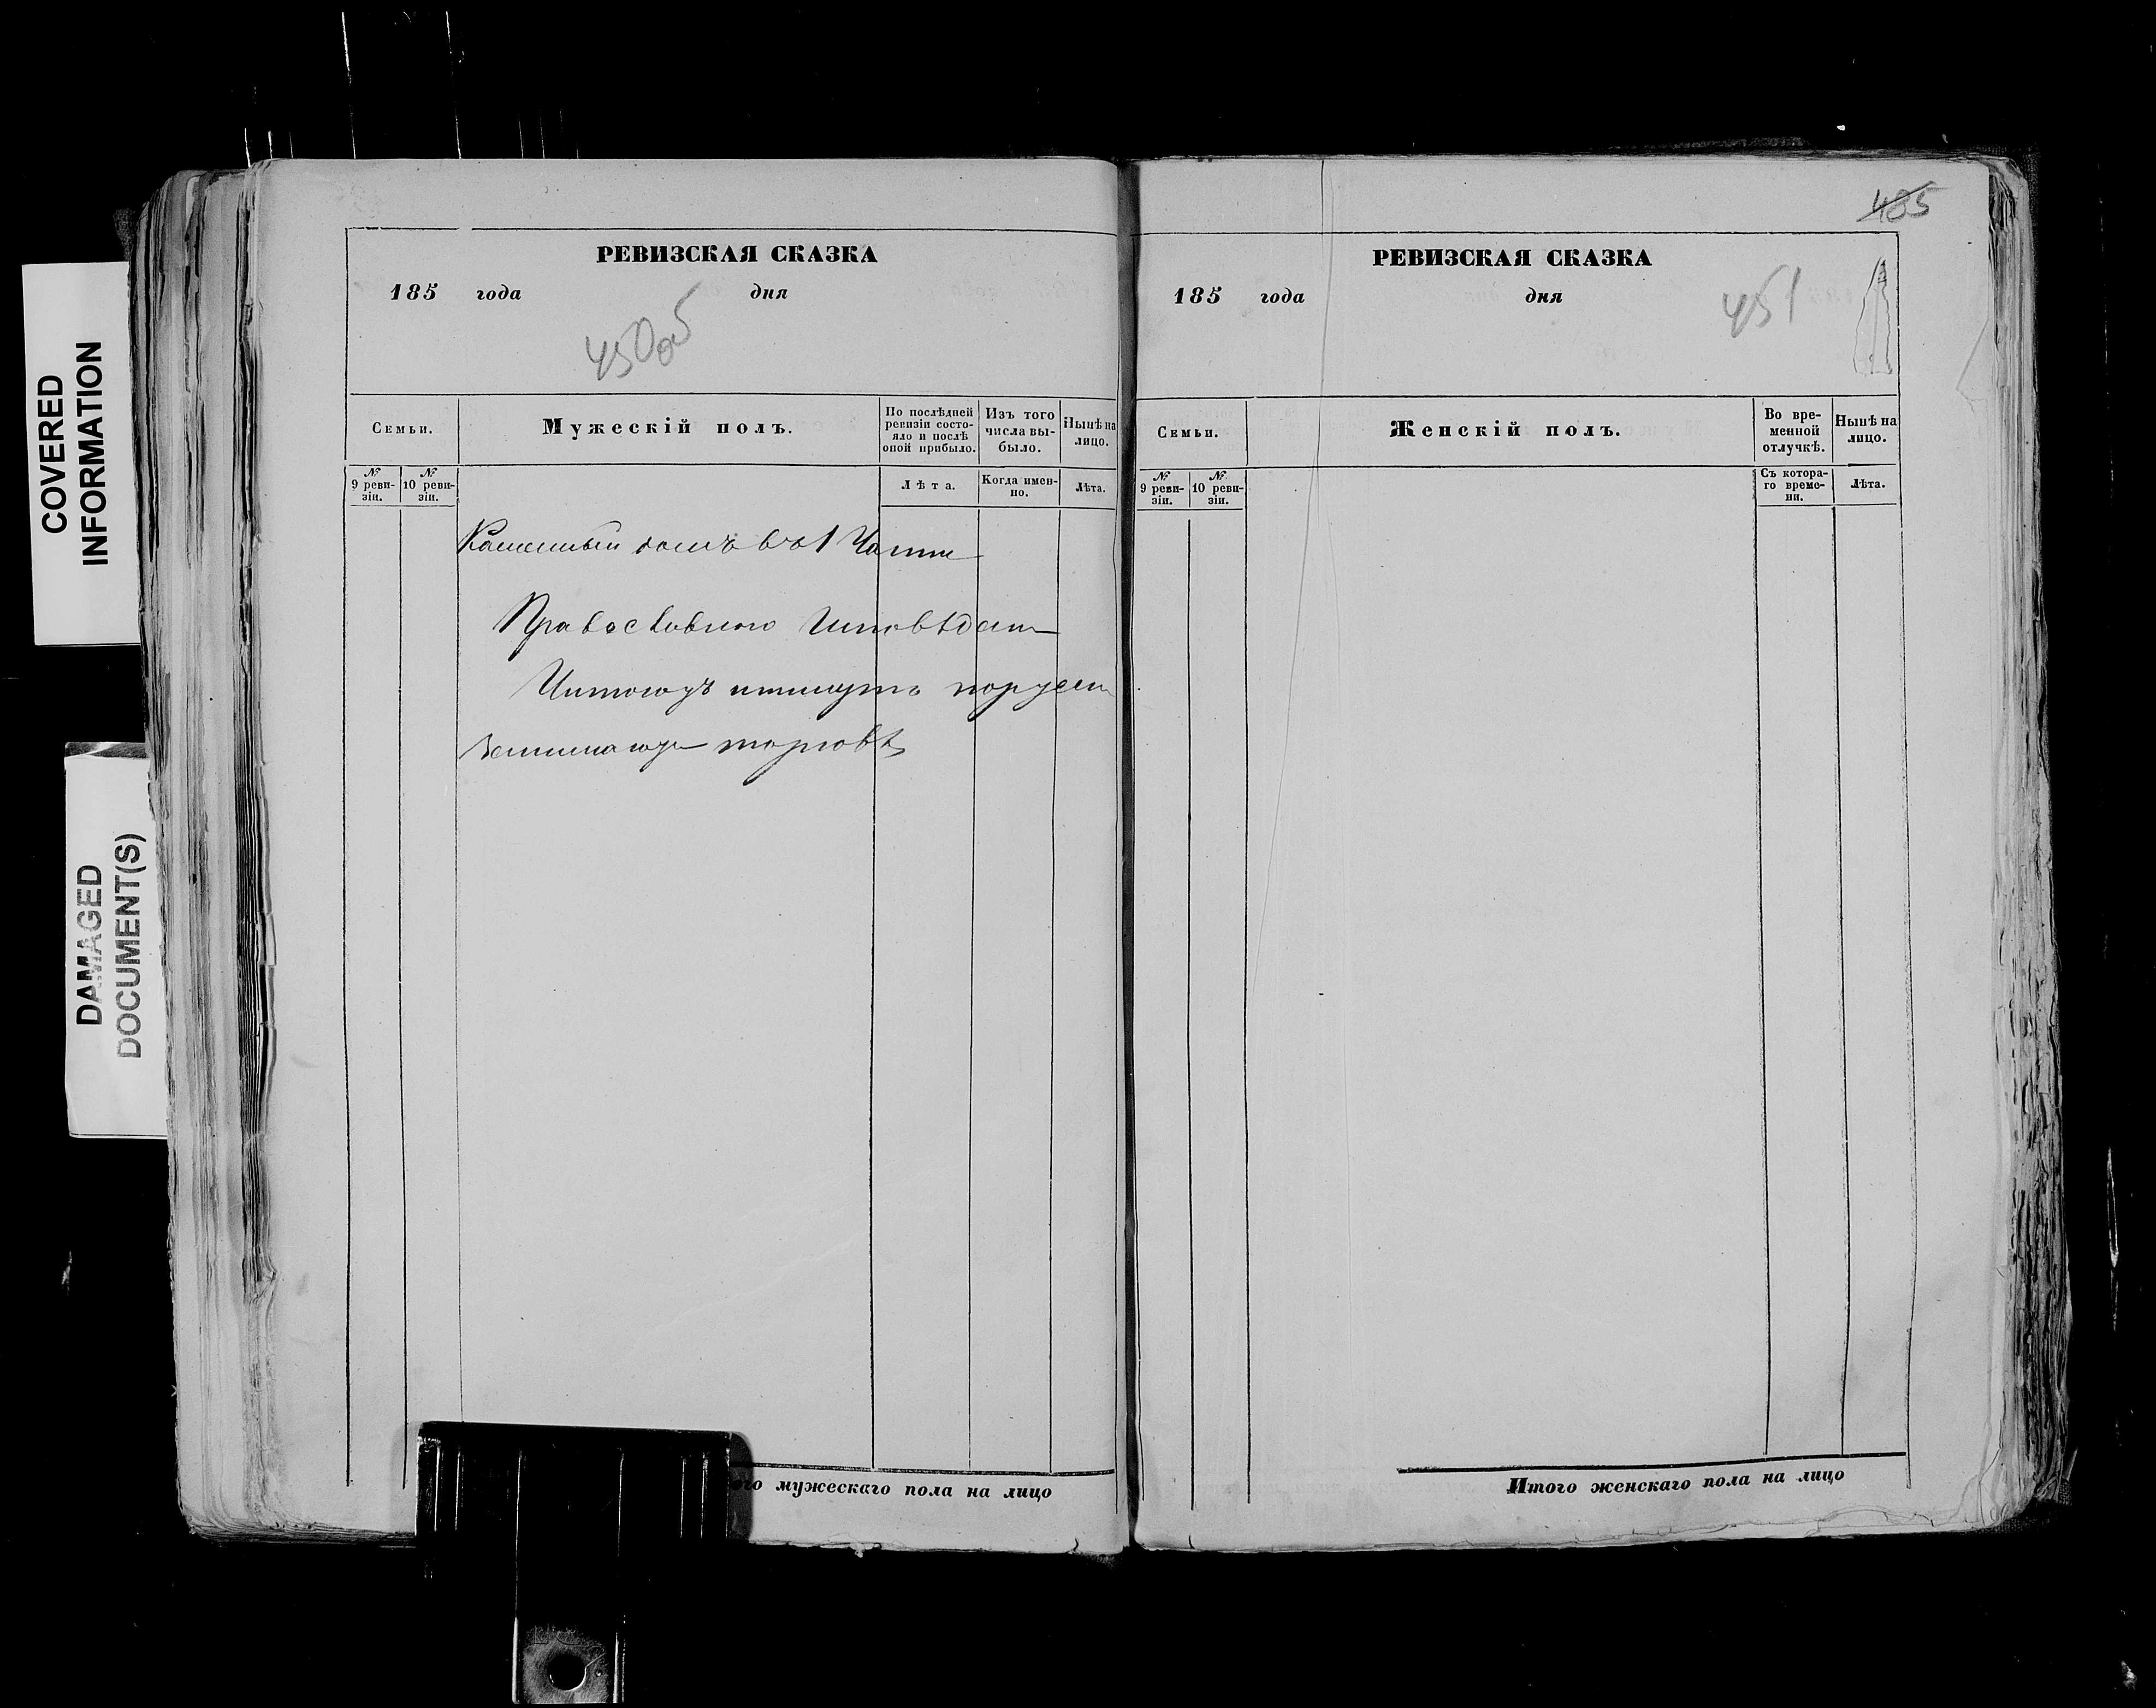 COVERED
INFORMATION
DAMAGED
DOCUMENT(S)
РЕВИЗСКАЯ СКАЗКА
185 года дня
450об
Семьи.
Мужескій полъ.
По послѣдней
ревизіи состо-
яло и послѣ
оной прибыло.
Изъ того
числа вы-
было.
Нынѣ на
лицо.
№
9 реви-
зіи.
№
10 реви-
зіи.
Лѣта.
Когда имен-
но.
Лѣта.
Каменный домъ въ 1 Части
Православного Исповѣдания
Читаютъ и пишутъ по руски
Занимаются торговлѣ
ого мужескаго пола на лицо
485
РЕВИЗСКАЯ СКАЗКА
185 года дня
451
Семьи.
Женскій полъ.
Во вре-
менной
отлучкѣ.
Нынѣ на
лицо.
№
9 реви-
зіи.
№
10 реви-
зіи.
Съ котора-
го време-
ни.
Лѣта.
Итого женскаго пола на лицо